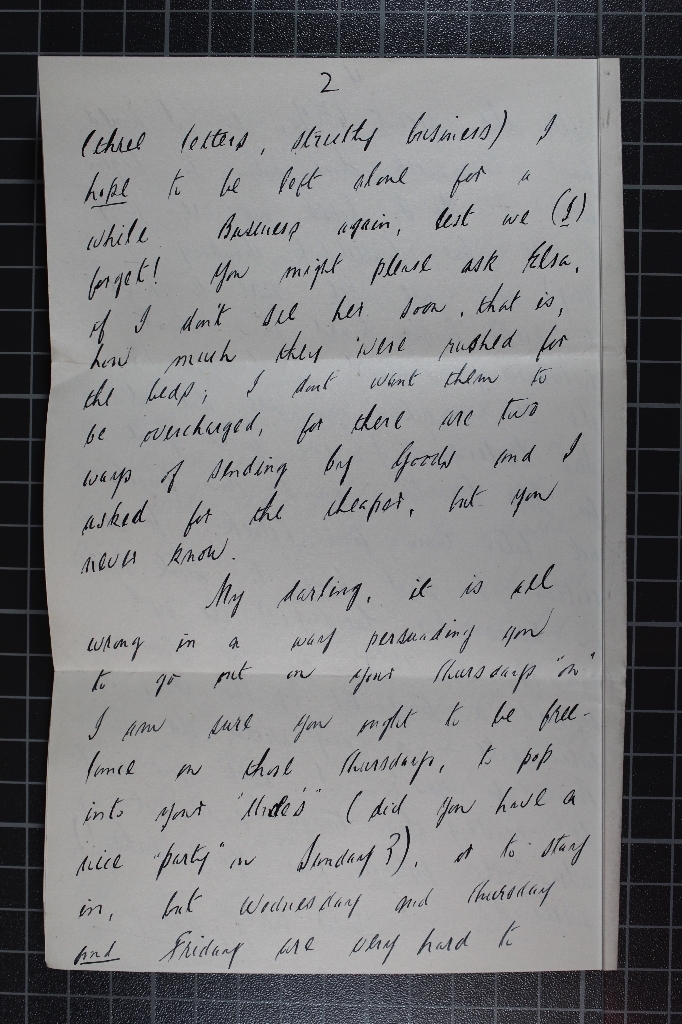 2
(three letters, strictly business) I
hope to be left alone for a
while. Business again, lest we (I)
forget! You might please ask Elsa,
if I don't see her soon, that is,
how much they were rushed for
the beds; I dont want them to
be overcharged, for there are two
ways of sending by Goods and I
asked for the cheaper, but you
never know.
My darling, it is all
wrong in a way persuading you
to go out on your Thursdays "on"
I am sure you ought to be free-
lance on those Thursdays, to pop
into your "Uncle's" (did you have a
nice "party" on Sunday?), or to stay
in, but Wednesday and Thursday
and Friday are very hard to